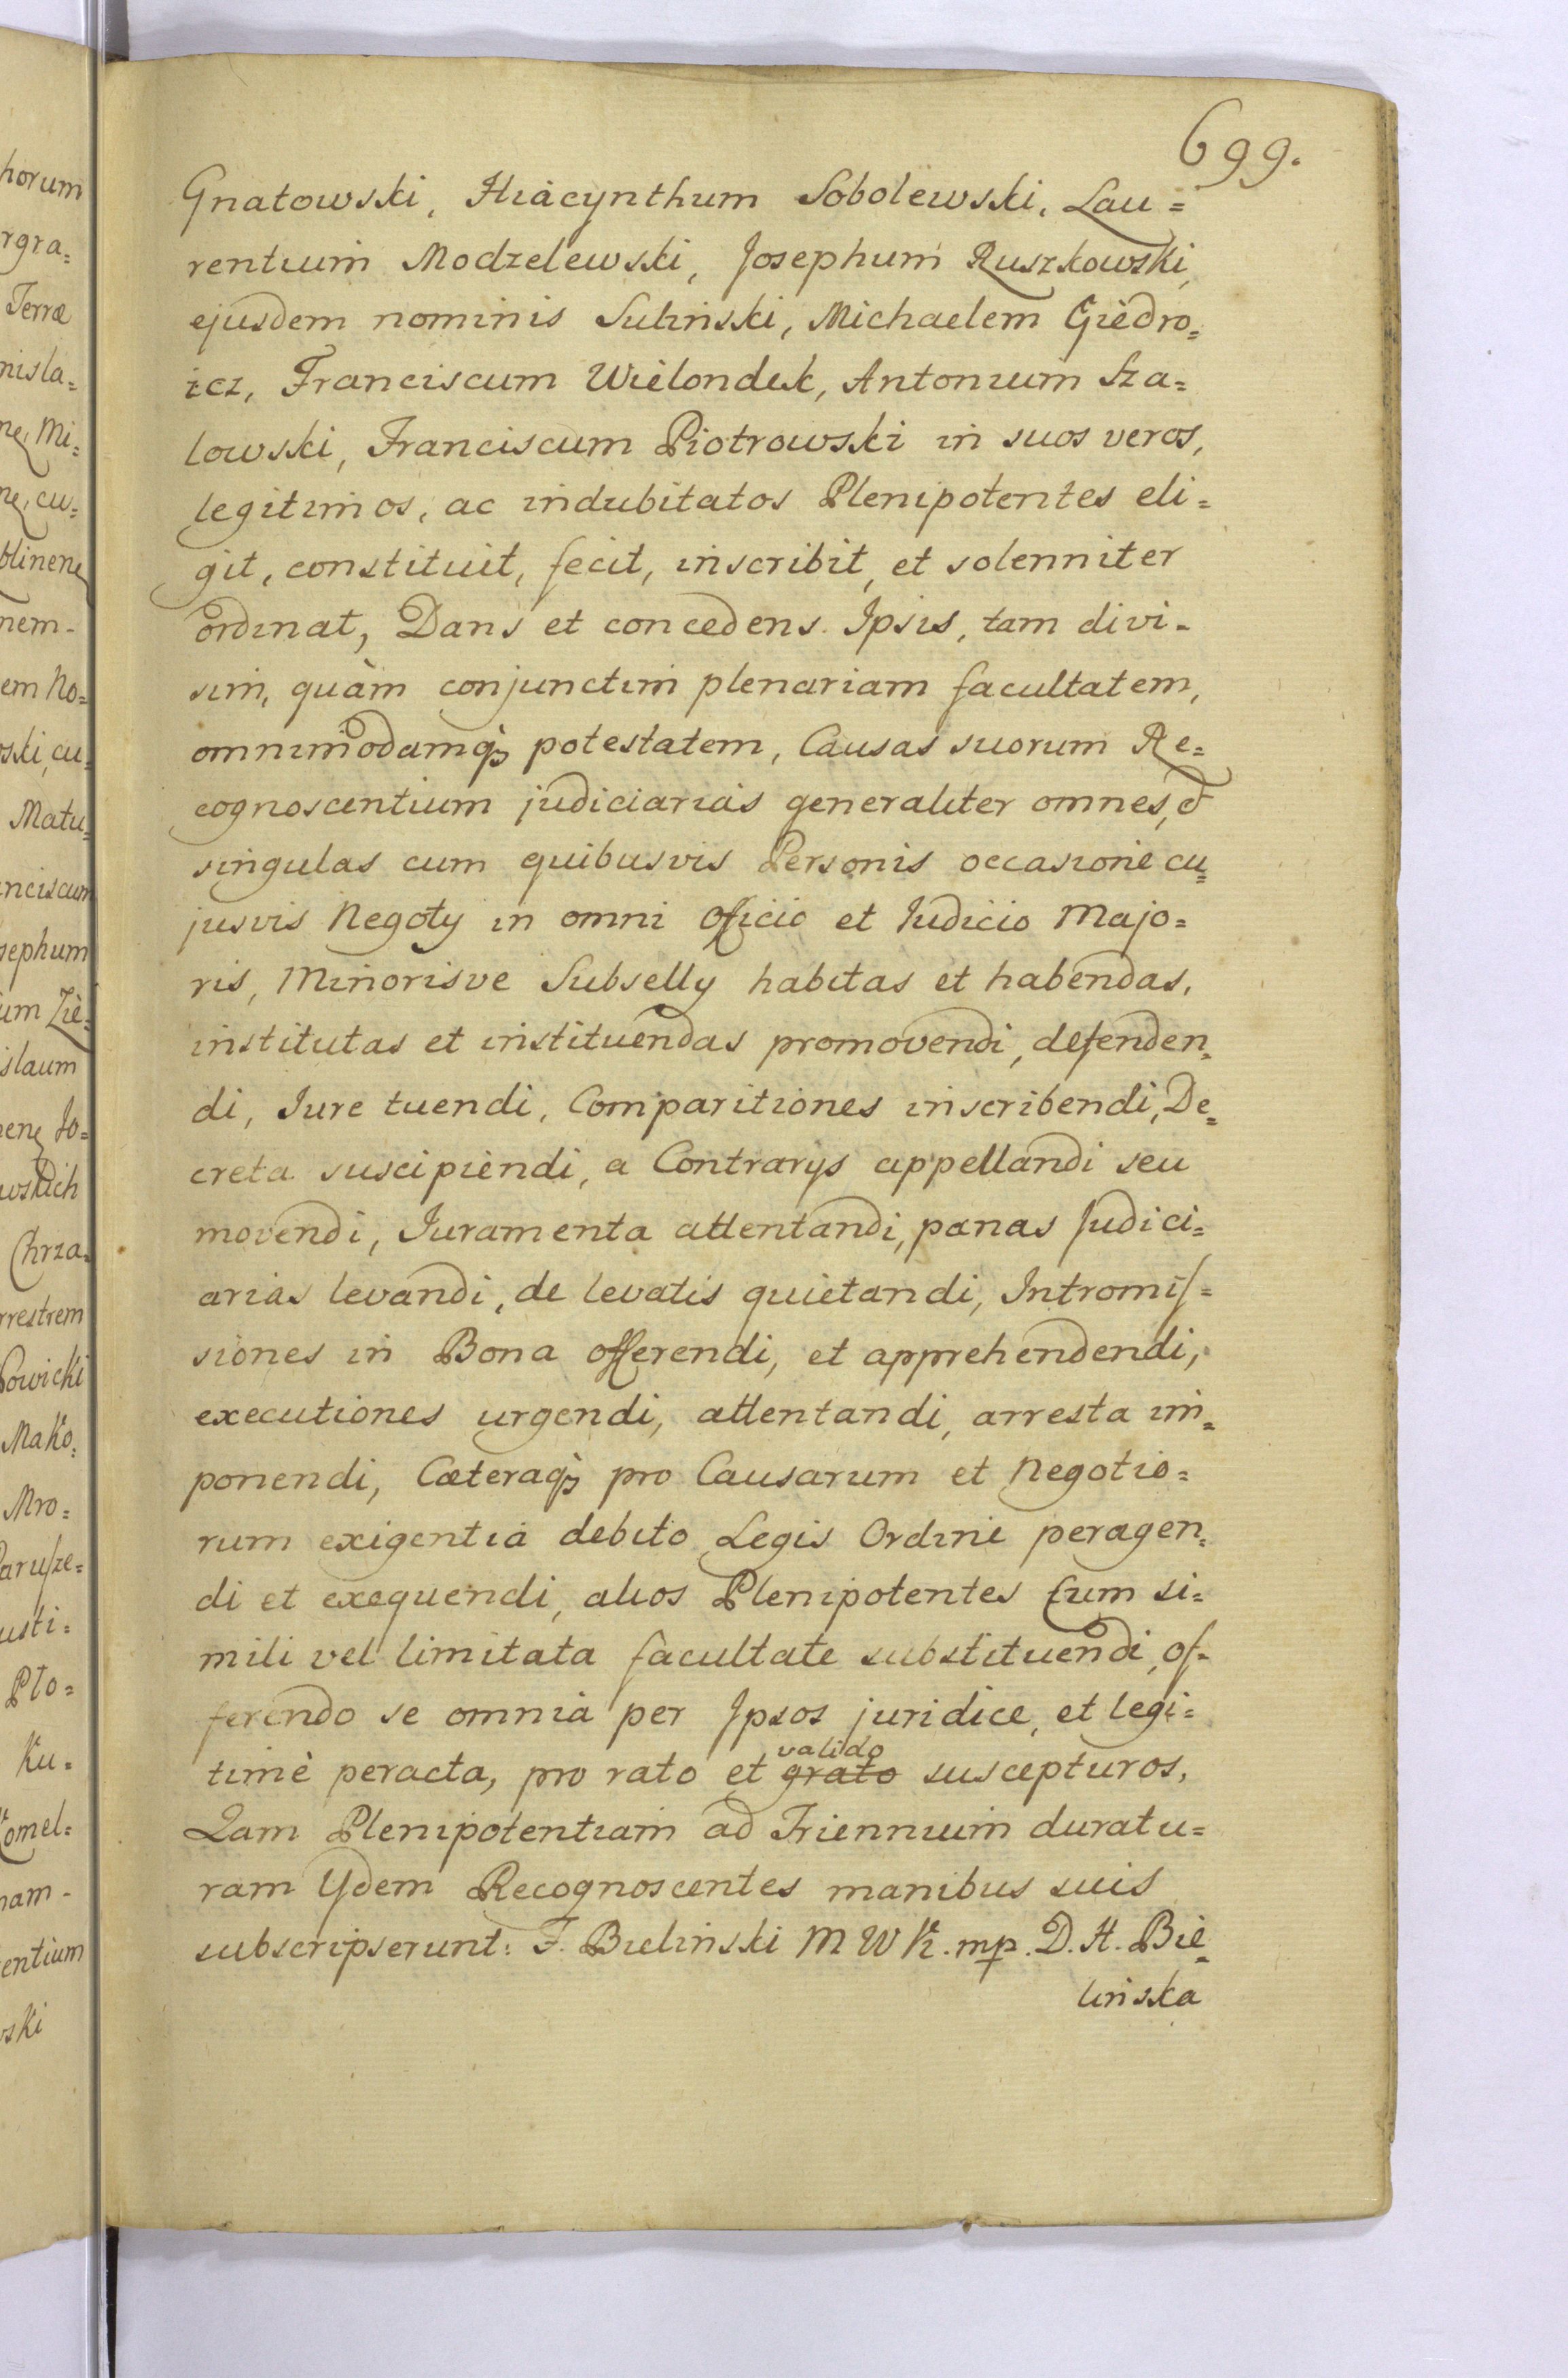 699.
Gnatowski, Hiacynthum Sobolewski, Lau=
rentium Modzelewski, Josephum Ruszkowski,
ejusdem nominis Suliński, Michaelem Giedro=
icz, Franciscum Wielondek, Antonium Sza=
lowski, Franciscum Piotrowski in suos veros,
legitimos, ac indubitatos Plenipotentes eli=
git, constituit, fecit, inscribit, et solenniter
ordinat, Dans et concedens Ipsis, tam divi-
sim, quàm conjunctim plenariam facultatem,
omnimodamq̃ꝫ potestatem, Causas suorum Re=
cognoscentium judiciarias generaliter omnes, et
singulas cum quibusvis Personis occasione cu=
jusvis Negoty in omni Officio et Iudicio Majo=
ris, Minorisve Subselly habitas et habendas,
institutas et instituendas promovendi, defenden=
di, Iure tuendi, Comparitiones inscribendi, De=
creta suscipiendi, a Contrarys appellandi seu
movendi, Juramenta attentandi, pænas Judici=
arias levandi, de levatis quietandi, Intromis=
siones in Bona offerendi, et apprehendendi,
executiones urgendi, attentandi, arresta im=
ponendi, Cæteraq̃ꝫ pro Causarum et Negotio=
rum exigentia debito Legis Ordine peragen=
di et exequendi, alios Plenipotentes Cum si=
mili vel limitata facultate substituendi, of=
ferendo se omnia per Ipsos juridice, et legi=
valido
timè peracta, pro rato et grato suscepturos.
Qam Plenipotentiam ad Triennium duratu=
ram Ydem Recognoscentes manibus suis
subscripserunt: F. Bieliński M W K. mp. D. H. Bie=
lińska
horum
rgra=
Terræ
nisla=
Mi=
cu=
nem-
em No=
oski, cu=
Matu=
nciscum
sephum
um Zie=
islaum
Jo=
wskich
Chrza=
rrestrem
owicki
Mako=
Mro=
arusze=
usti=
Plo=
Ku=
omel=
nam-
entium
wski